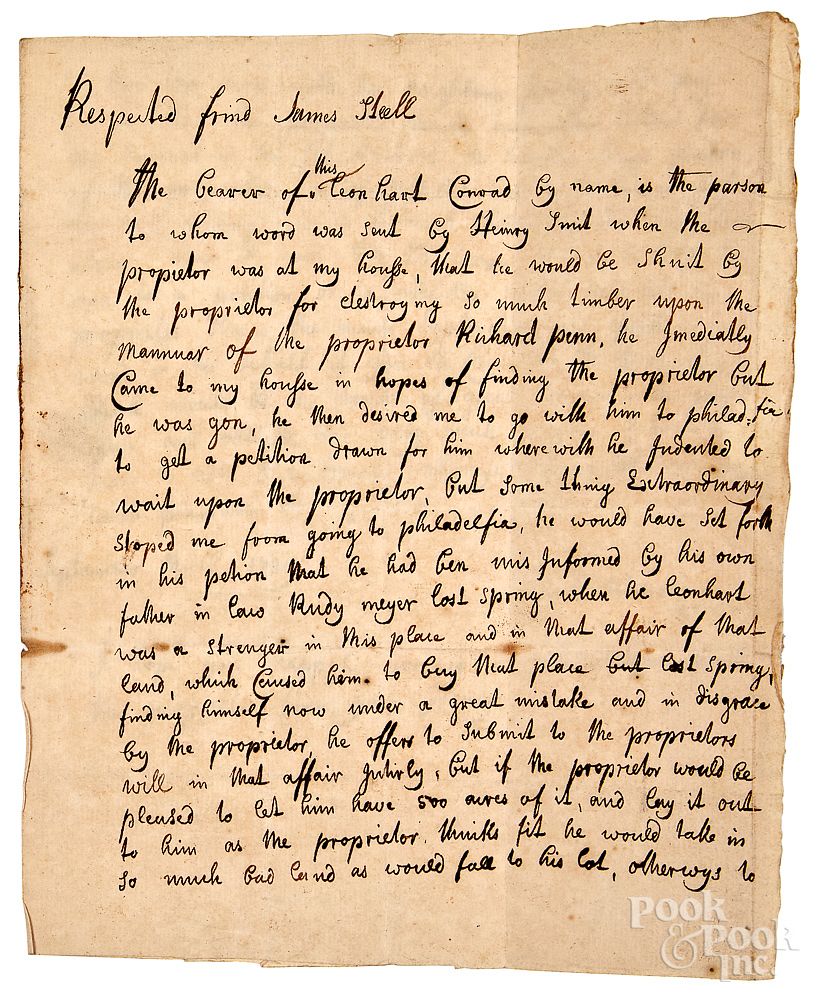 Respected frind James Steel
this
The bearer of Leonhart Conrad by name, is the parson
to whom word was sent by Heinry Smit when the
propietor was at my housse, that he would be Shuit by
the proprietor for destroying so much timber upon the
mannuar of the proprietor Richard penn, he Jmediatly
Came to my housse in hopes of finding the proprietor but
he was gon, he then desired me to go with him to philad:fia
to get a petition drawn for him wherewith he Jndented to
wait upon the proprietor, but some thing Extraordinary
stoped me from going to philadelfia, he would have set forth
in his petion that he had ben mis Jnformed by his own
father in law Rudy meyer last spring, when he leonhart
was a strenger in this place and in that affair of that
land, which Caused him to buy that place but last spring,
finding himself now under a great mistake and in disgrace
by the proprietor, he offers to submit to the proprietors
will in that affair Jntirly, but if the proprietor would be
pleused to let him have 500 acres of it, and lay it out
to him as the proprietor thinks fit he would take in
so much bad land as would fall to his lot, otherwys to
POOK
& POOK
Inc.